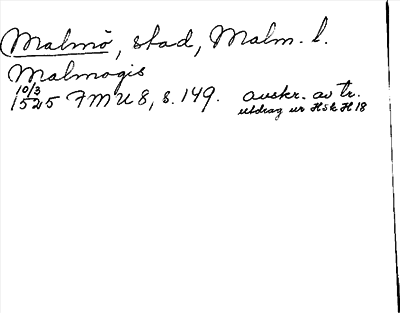 Malmö, stad, Malm. l.
Malmogis
10/3
1525 FMU 8, s. 149. avskr. av tr.
utdrag ur Hsk H 18